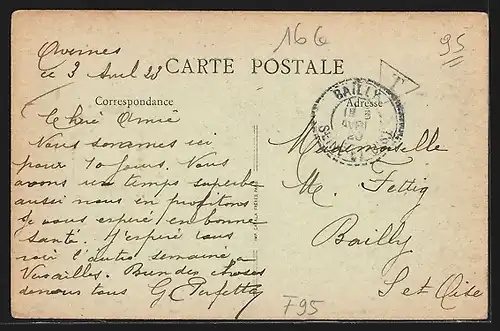 Avernes
ce 3 Avril 23
16 G
95
CARTE POSTALE
T
Correspondance
Adresse
BAILLY
Chère Amie
Nous sommes ici
pour 10 jours. Nous
avons un temps superbe
aussi nous en profitons
Je vous espère en bonne
santé. J'espère vous
voir l'autre semaine à
Versailles. Bien des choses
de nous tous G. Perfetta
Mademoiselle
M. Fettig
Bailly
S et Oise
F95